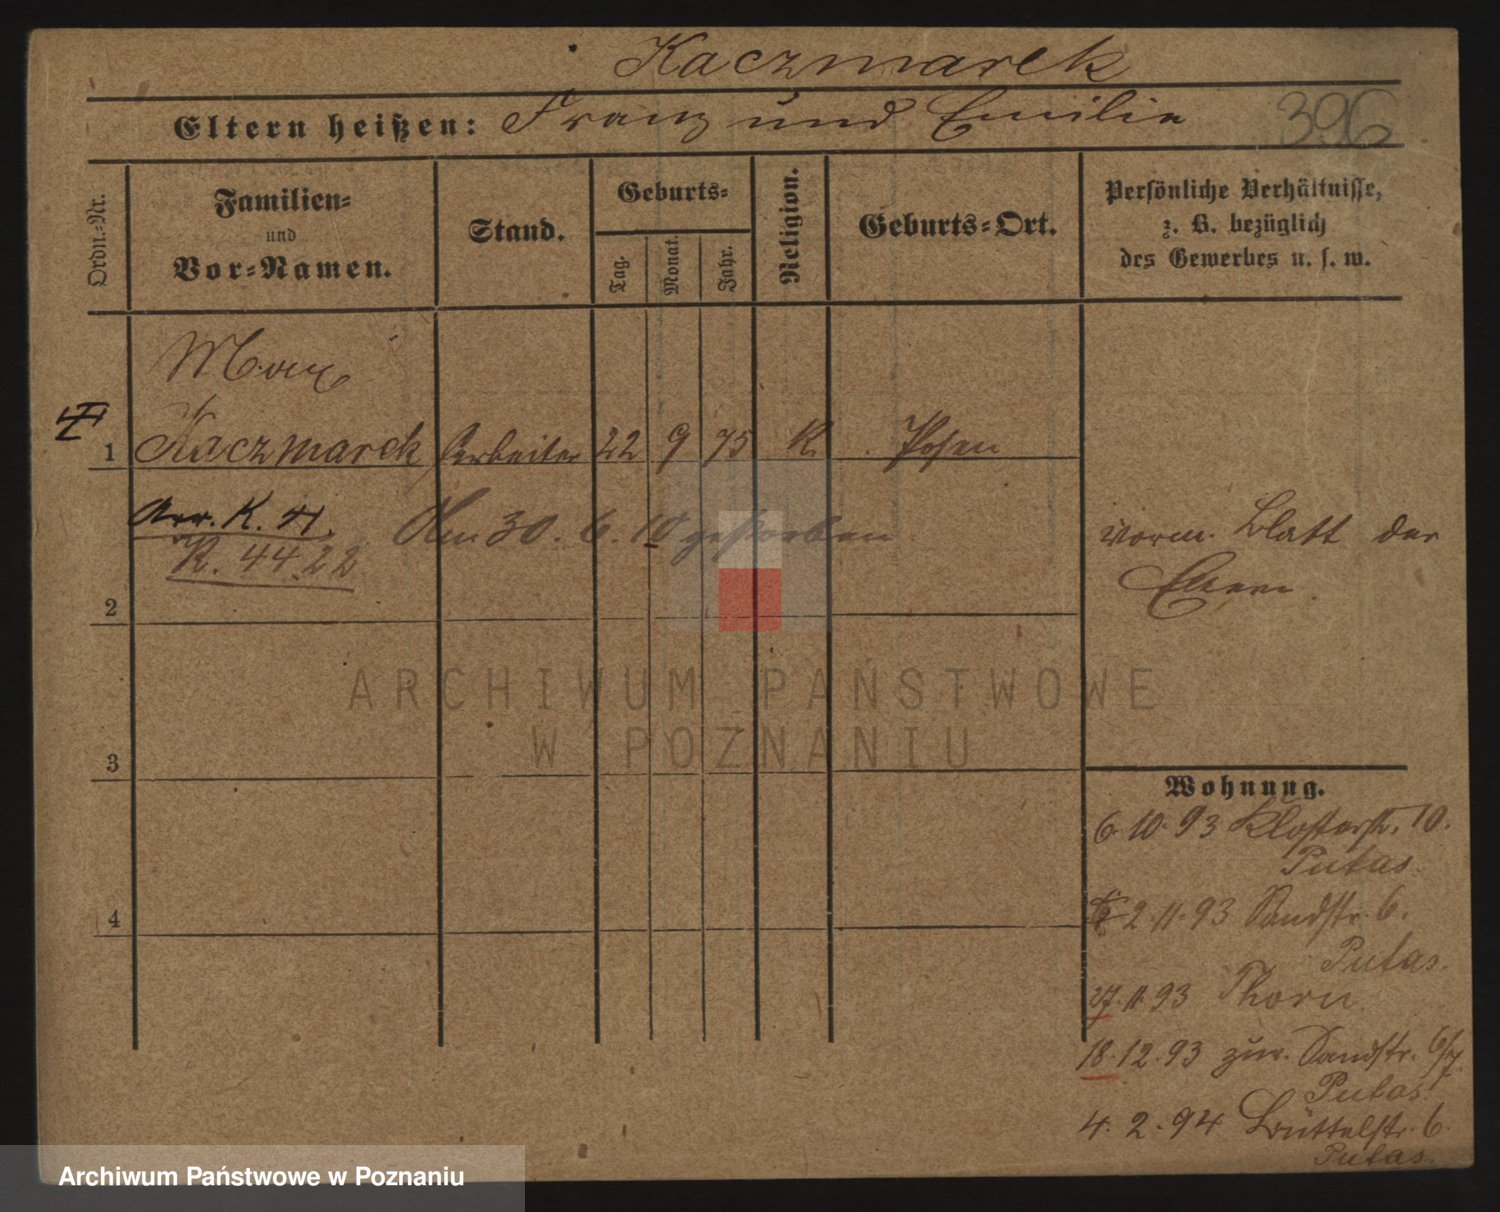 Kaczmarek
Eltern heißen: Franz und Emilie 396
Ordn.-Nr.
Familien-
und
Vor-Namen.
Stand.
Geburts-
Tag.
Monat.
Jahr.
Religion.
Geburts-Ort.
Persönliche Verhältnisse,
z. B. bezüglich
des Gewerbes u. s. w.
Max
1 Kaczmarek Arbeiter 22 9 75 K. Posen
K. 41.
Am 30. 6. 10 gestorben
K. 44.22
vorm. Blatt der
Eltern
2
3
4
ARCHIWUM PAŃSTWOWE
W POZNANIU
Wohnung.
6. 10. 93 Klosterstr. 10.
Putas.
2. 11. 93 Sandstr. 6.
Putas.
27. 11. 93 Thorn.
18. 12. 93 zur. Sandstr. 6/7.
Putas.
4. 2. 94 Büttelstr. 6.
Putas.
Archiwum Państwowe w Poznaniu